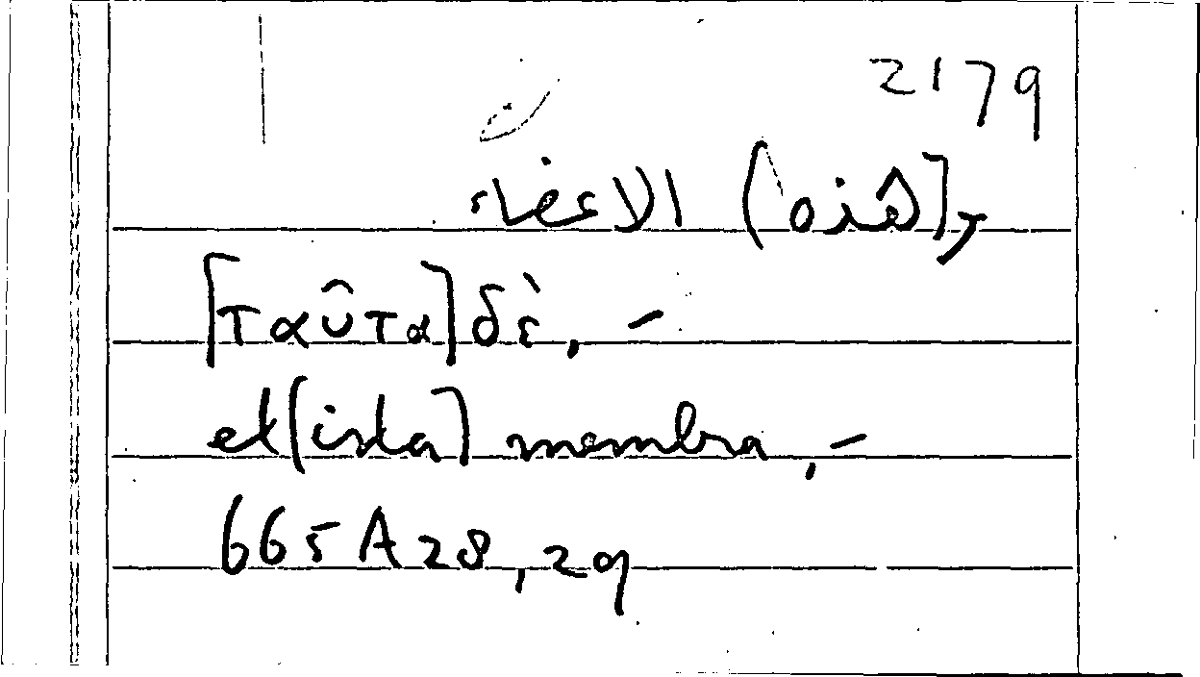 2179
و[هذه] الاعضاء
[ταῦτα] δὲ, –
et [ista] membra, –
665A28,29